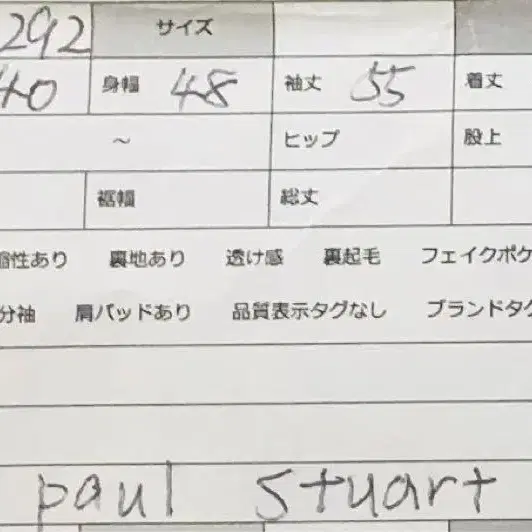 292 サイズ
40 身幅 48 袖丈 55 着丈
～ ヒップ 股上
裾幅 総丈
縮性あり 裏地あり 透け感 裏起毛 フェイクポケ
分袖 肩パッドあり 品質表示タグなし ブランドタグ
paul stuart